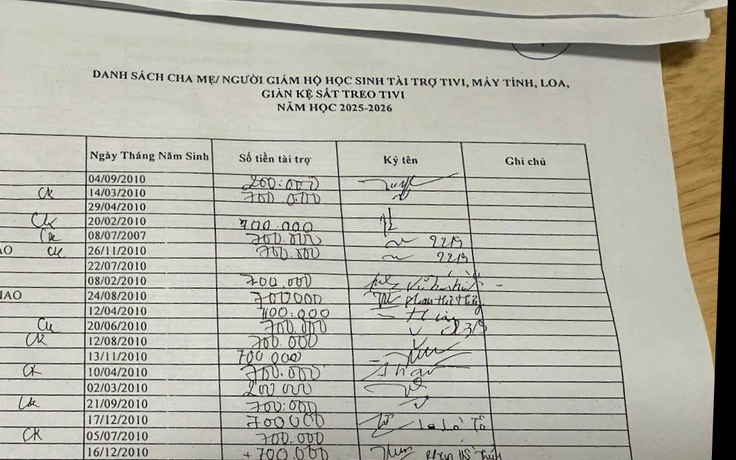 DANH SÁCH CHA MẸ/ NGƯỜI GIÁM HỘ HỌC SINH TÀI TRỢ TIVI, MÁY TÍNH, LOA,
GIÀN KỆ SẮT TREO TIVI
NĂM HỌC 2025-2026
Ngày Tháng Năm Sinh Số tiền tài trợ Ký tên Ghi chú
04/09/2010 200.000
CK 14/03/2010 700.000
29/04/2010
CK 20/02/2010 700.000
CK 08/07/2007 700.000 22/9
CK 26/11/2010 700.000 22/9
22/07/2010
08/02/2010 700.000
24/08/2010 700000
12/04/2010 700.000
CK 20/06/2010 700.000
CK 12/08/2010 700.000
13/11/2010 700 000
CK 10/04/2010 700.000
02/03/2010 200 000
CK 21/09/2010 700.000
17/12/2010 700000
CK 05/07/2010 700.000
16/12/2010 +700.000